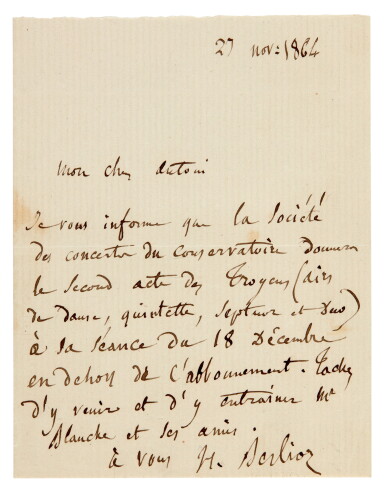 27 nov: 1864
Mon cher Antoni
Je vous informe que la Société
des concerts du conservatoire donnera
le second acte des Troyens (airs
de danse, quintette, septuor et Duo)
à sa séance du 18 Décembre
en dehors de l'abbonnement. Tachez
d'y venir et d'y entrainer Mr
Blanche et ses amis.
à vous H. Berlioz